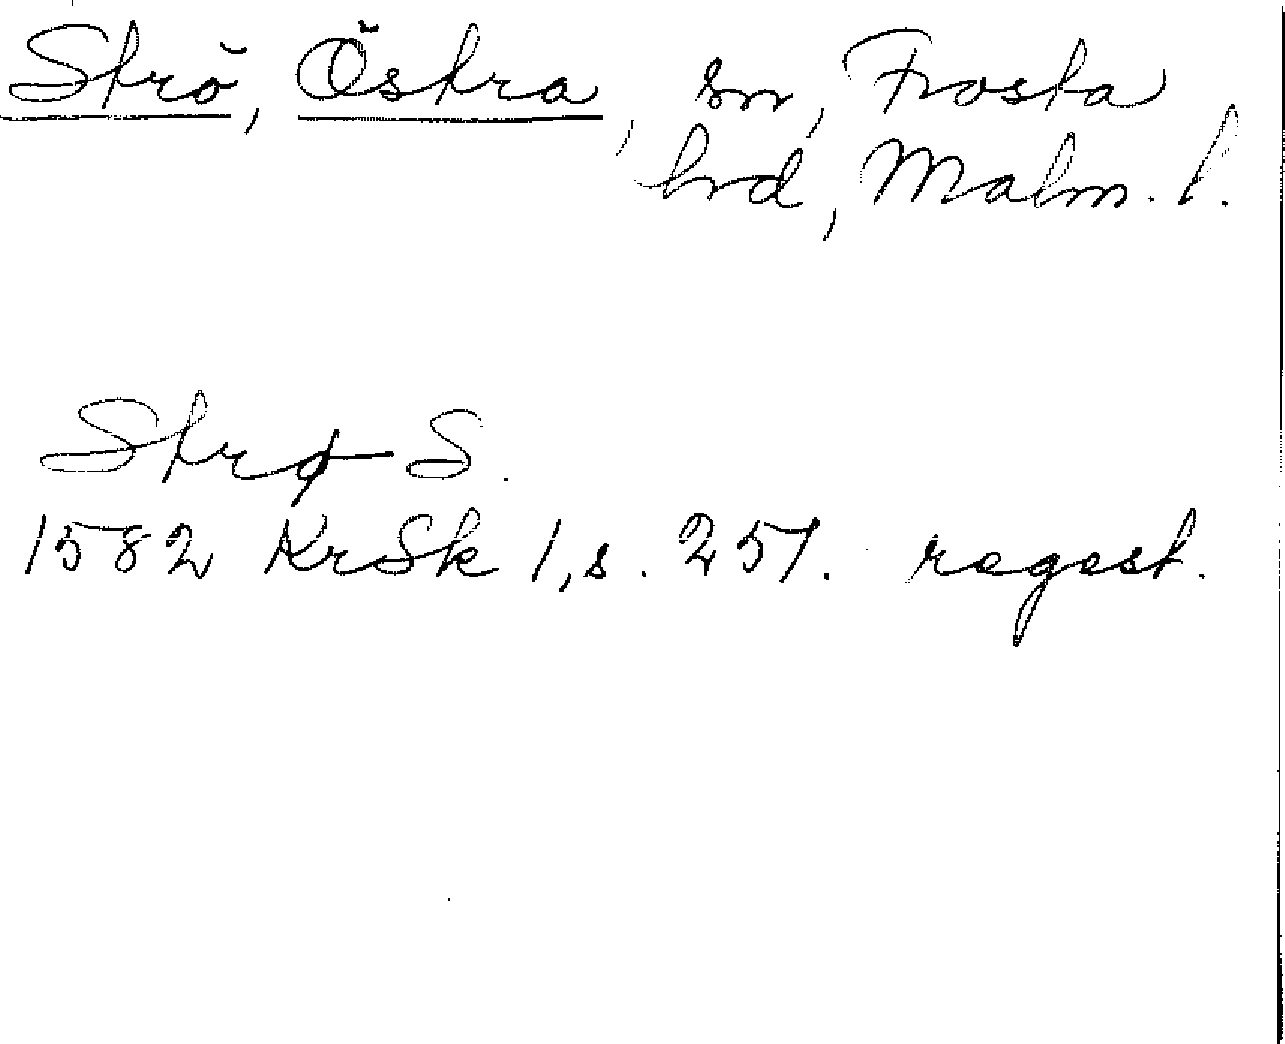 Strö, Östra, sn, Frosta
hrd, Malm. l.
Strø S.
1582 KrSk 1, s. 257. regest.